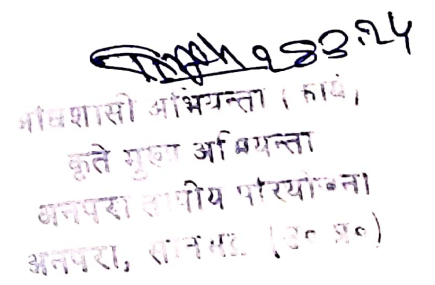 28.3.24
अधिशासी अभियन्ता (कार्य)
कृते मुख्य अभियन्ता
अनपरा तापीय परियोजना
अनपरा, सोनभद्र (उ० प्र०)